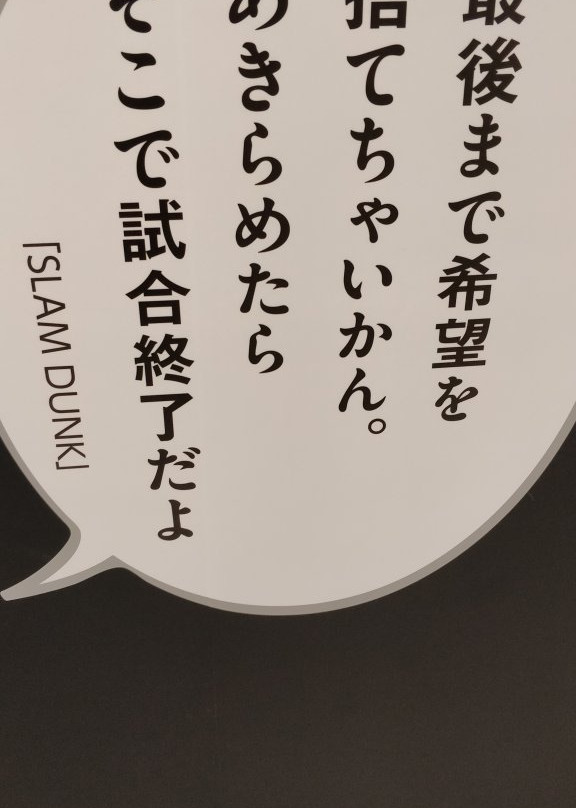 最後まで希望を
捨てちゃいかん。
あきらめたら
そこで試合終了だよ
「SLAM DUNK」